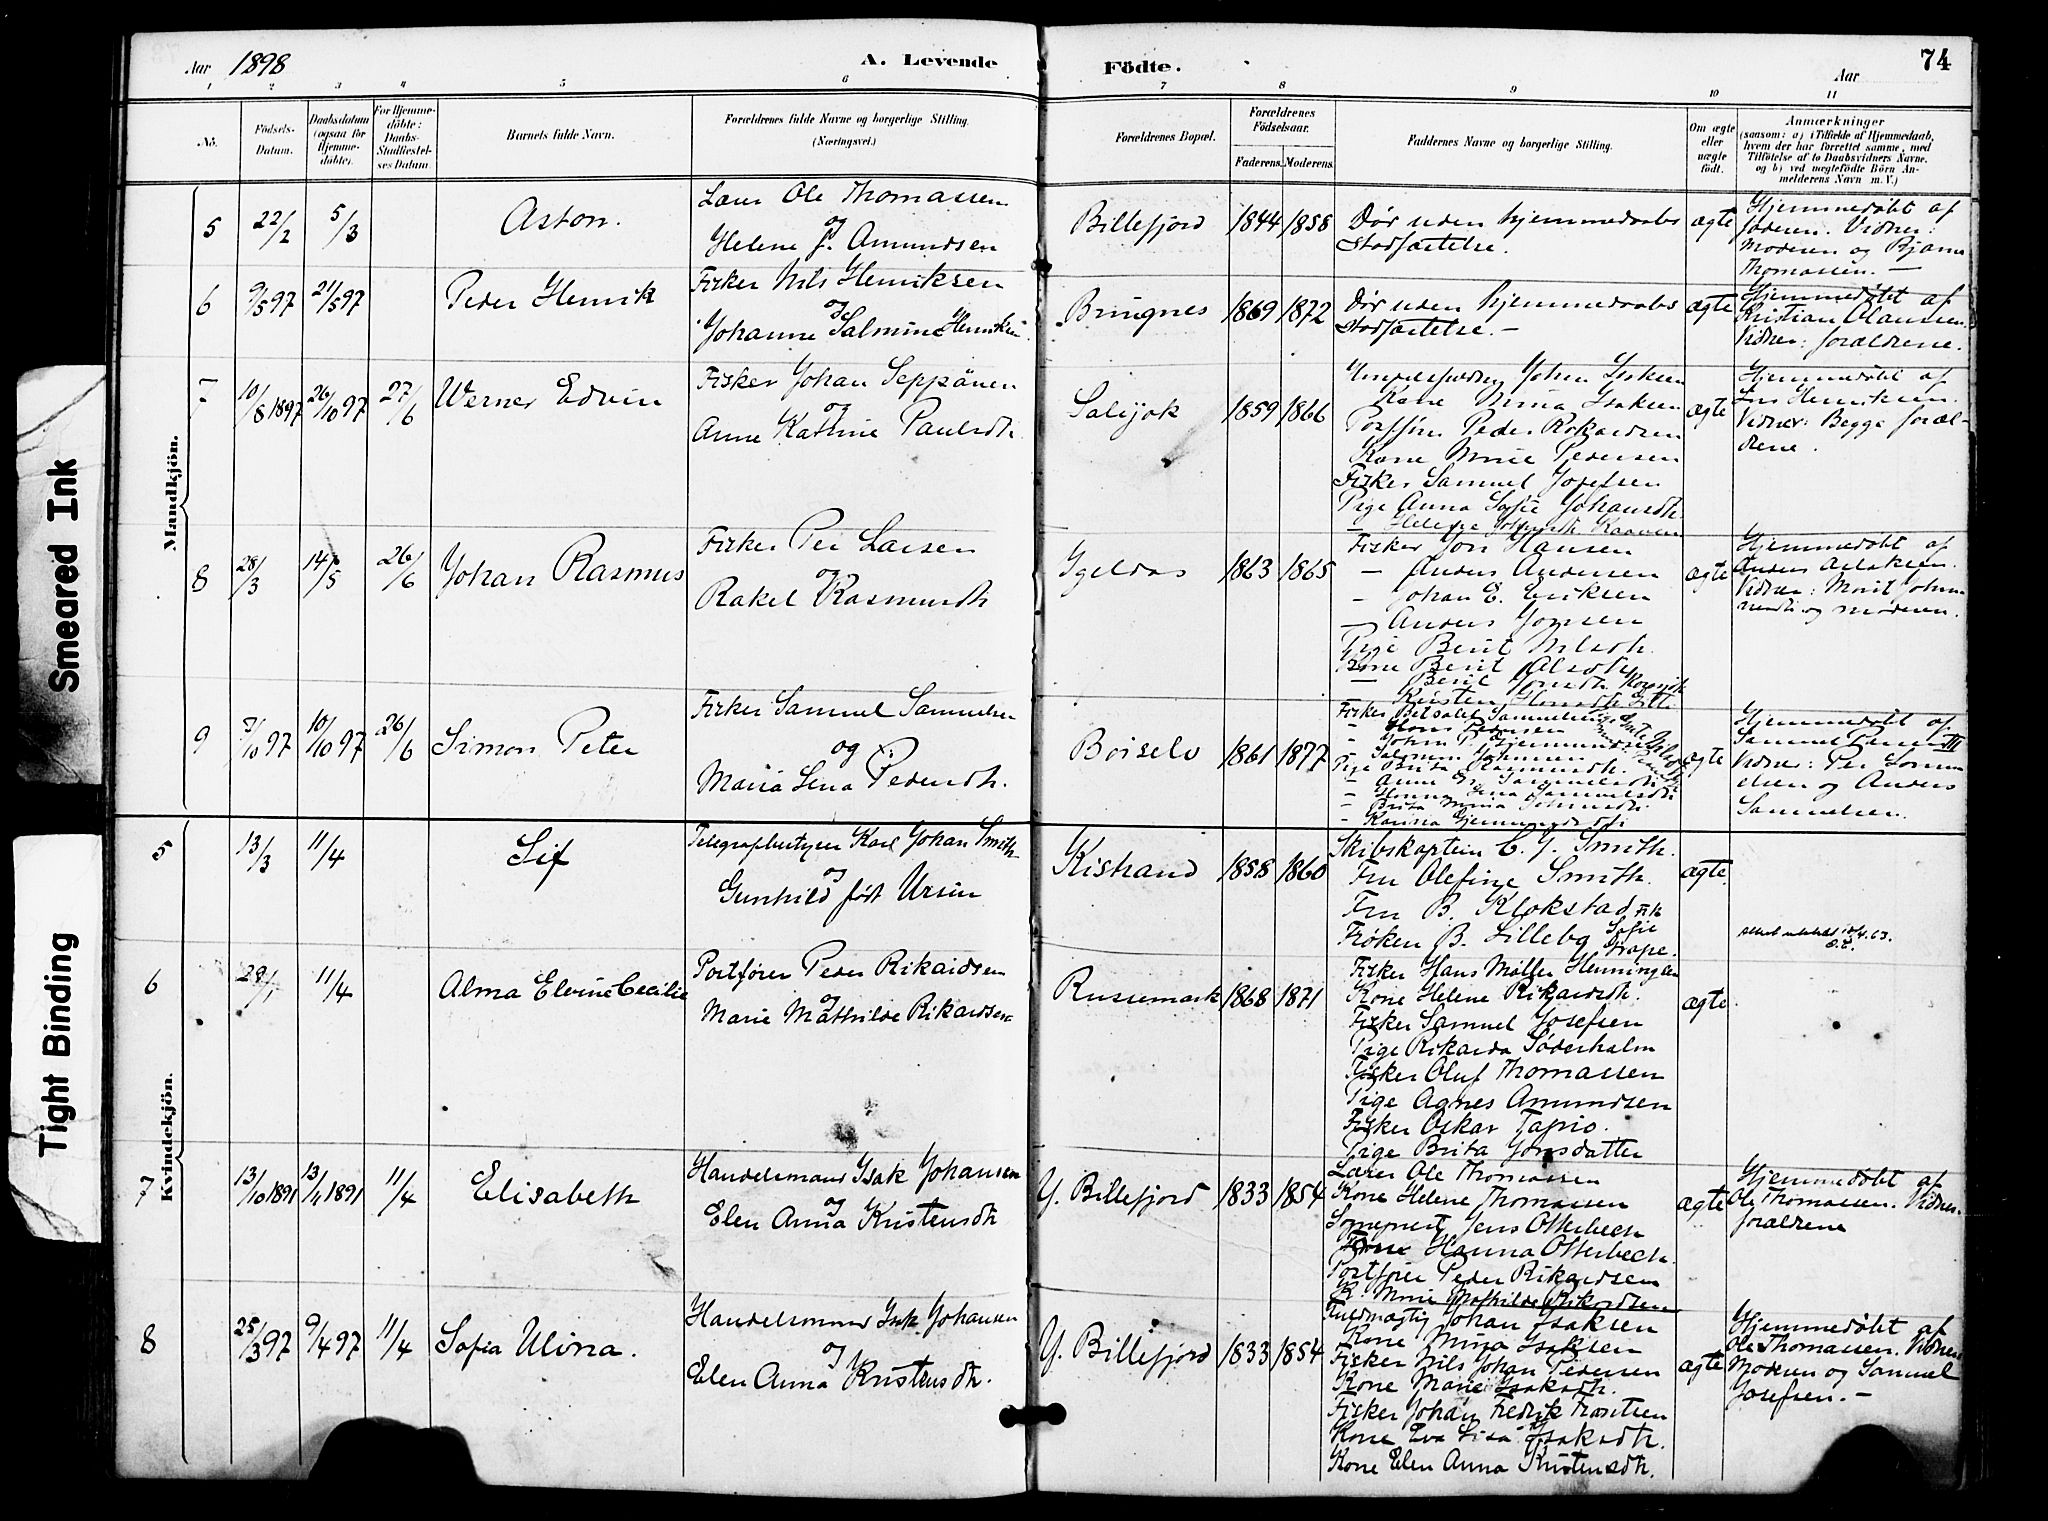 Aar 1898
A. Levende
Födte.
Aar
74
1 2 3 4 5 6 7 8 9 10 11
No.
Födsels-
Datum.
Daabsdatum
(ogsaa for
Hjemme-
döbte).
For Hjemme-
döbte:
Daabs-
Stadfæstel-
ses Datum.
Barnets fulde Navn.
Forældrenes fulde Navne og borgerlige Stilling.
(Næringsvei.)
Forældrenes Bopæl.
Forældrenes
Födselsaar.
Faderens. Moderens.
Faddernes Navne og borgerlige Stilling.
Om ægte
eller
uægte
födt.
Anmærkninger
(saasom: a) i Tilfælde af Hjemmedaab,
hvem der har forrettet samme, med
Tilföielse af to Daabsvidners Navne.
og b) ved uægtefödte Börn An-
melderens Navn m. V.)
Smeared Ink
Tight Binding
Mandkjön.
Kvindekjön.
5
22/2
5/3
Aston.
Lærer Ole Thomassen
og
Helene f. Amundsen
Billefjord
1844 1858
Dør uden hjemmedaabs
stadfæstelse.
ægte
Hjemmedøbt af
faderen. Vidner:
Moderen og Bjarne
Thomassen. —
6
9/5 97
21/5 97
Peder Henrik
Fisker Nils Henriksen
og
Johanne Salmine Henriksen
Bringnes
1869 1872
Dør uden hjemmedaabs
stadfæstelse. —
ægte
Hjemmedøbt af
Kristian Olaussen.
Vidner: forældrene.
7
10/8 1897
26/10 97
27/6
Werner Edvin
Fisker Johan Seppänen
og
Anne Katrine Paulsdt.
Salijok
1859 1866
Johan Isaksen
Kone Mina Isaksen
Postfører Peder Rikardsen
Kone Marie Pedersen
Fisker Samuel Josefsen
Pige Anna Sofie Johansdt.
ægte
Hjemmedøbt af
Henriksen.
Vidner: Begge foræl-
drene.
8
28/3
14/5
26/6
Johan Rasmus
Fisker Per Larsen
og
Rakel Rasmusdt.
Igeldas
1863 1865
Fisker Jon Hansen
— Anders Andersen
— Johan E. Eriksen
— Anders Jonsen
Pige Berit Nilsdt.
Kone Berit Olsdt.
ægte
Hjemmedøbt af
Anders Aslaksen.
Vidner: Marit Johan-
nesdt. og moderen.
9
3/10 97
10/10 97
26/6
Simon Peter
Fisker Samuel Samuelsen
og
Maria Lena Pedersdt.
Børselv
1861 1877
ægte
Hjemmedøbt af
Samuel III
Vidner: Per Samu-
elsen og Anders
Samuelsen.
5
13/3
11/4
Sif
Telegrafbestyrer Karl Johan Smith
og
Gunhild født Ursin
Kistrand
1858 1860
Skibskaptein C. J. Smith.
Fru Olefine Smith.
Fru B. Klokstad
Frøken B. Lilleby
ægte.
6
28/1
11/4
Alma Elvine Cecilie
Postfører Peder Rikardsen
og
Marie Mathilde Rikardsen
Russemark
1868 1871
Fisker Hans Møller Henningsen
Kone Helene Rikardsdt.
Fisker Samuel Josefsen
Pige Rikarda Søderholm
Fisker Oluf Thomassen
Pige Agnes Amundsen
Fisker Oskar Tapio.
Pige Brita Jonsdatter
ægte
7
13/10 1891
13/11 1891
11/4
Elisabeth
Handelsmand Isak Johansen
og
Elen Anna Kristensdt.
Y. Billefjord
1833 1854
Lærer Ole Thomassen
Kone Helene Thomassen
Jens Otterbech
Kone Hanna Otterbech
Postfører Peder Rikardsen
K. Marie Mathilde Rikardsen
ægte
Hjemmedøbt af
Ole Thomassen. Vidner:
forældrene
8
25/3 97
9/4 97
11/4
Sofia Ulina.
Handelsmand Isak Johansen
og
Elen Anna Kristensdt.
Y. Billefjord
1833 1854
Fuldmægtig Johan Isaksen
Kone Mina Isaksen
Fisker Nils Johan Pedersen
Kone Marie Isaksdt.
Fisker Johan Fredrik Frantsen
Kone Eva Lisa Isaksdt.
Kone Elen Anna Kristensdt.
ægte
Hjemmedøbt af
Ole Thomassen. Vidner:
Moderen og Samuel
Josefsen. —